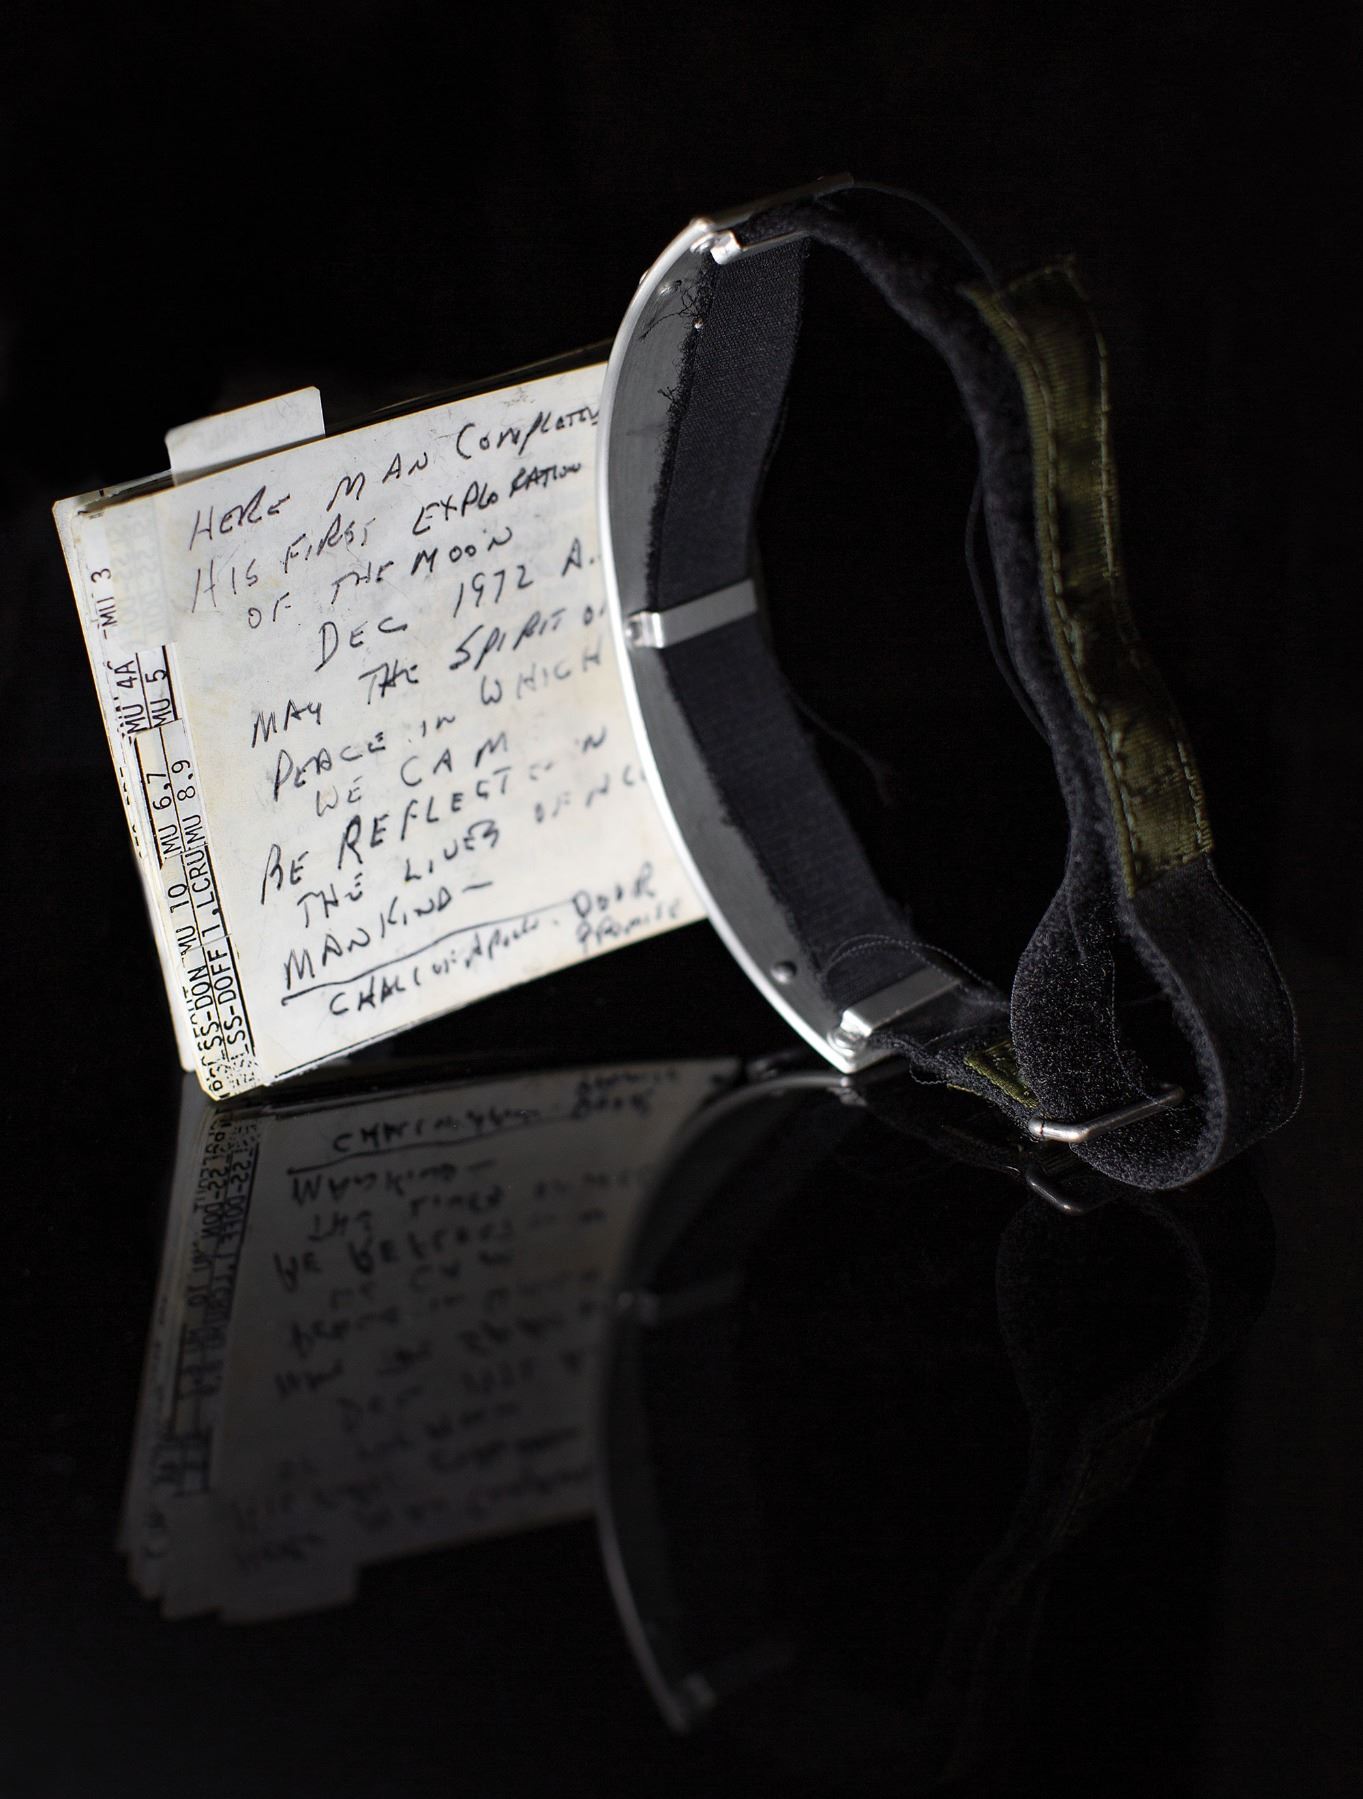 HERE MAN COMPLETED
HIS FIRST EXPLORATION
OF THE MOON
DEC 1972 A.
MAY THE SPIRIT O
PEACE IN WHICH
WE CAM
BE REFLECTED IN
THE LIVES OF
MANKIND—
CHALL DOOR
PROMISE
MU 3
MU 4A
MU 5
MU 6,7
MU 8,9
MU 10
LCRU
SS-DON
SS-DOFF 1